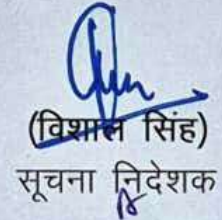 (विशाल सिंह)
सूचना निदेशक